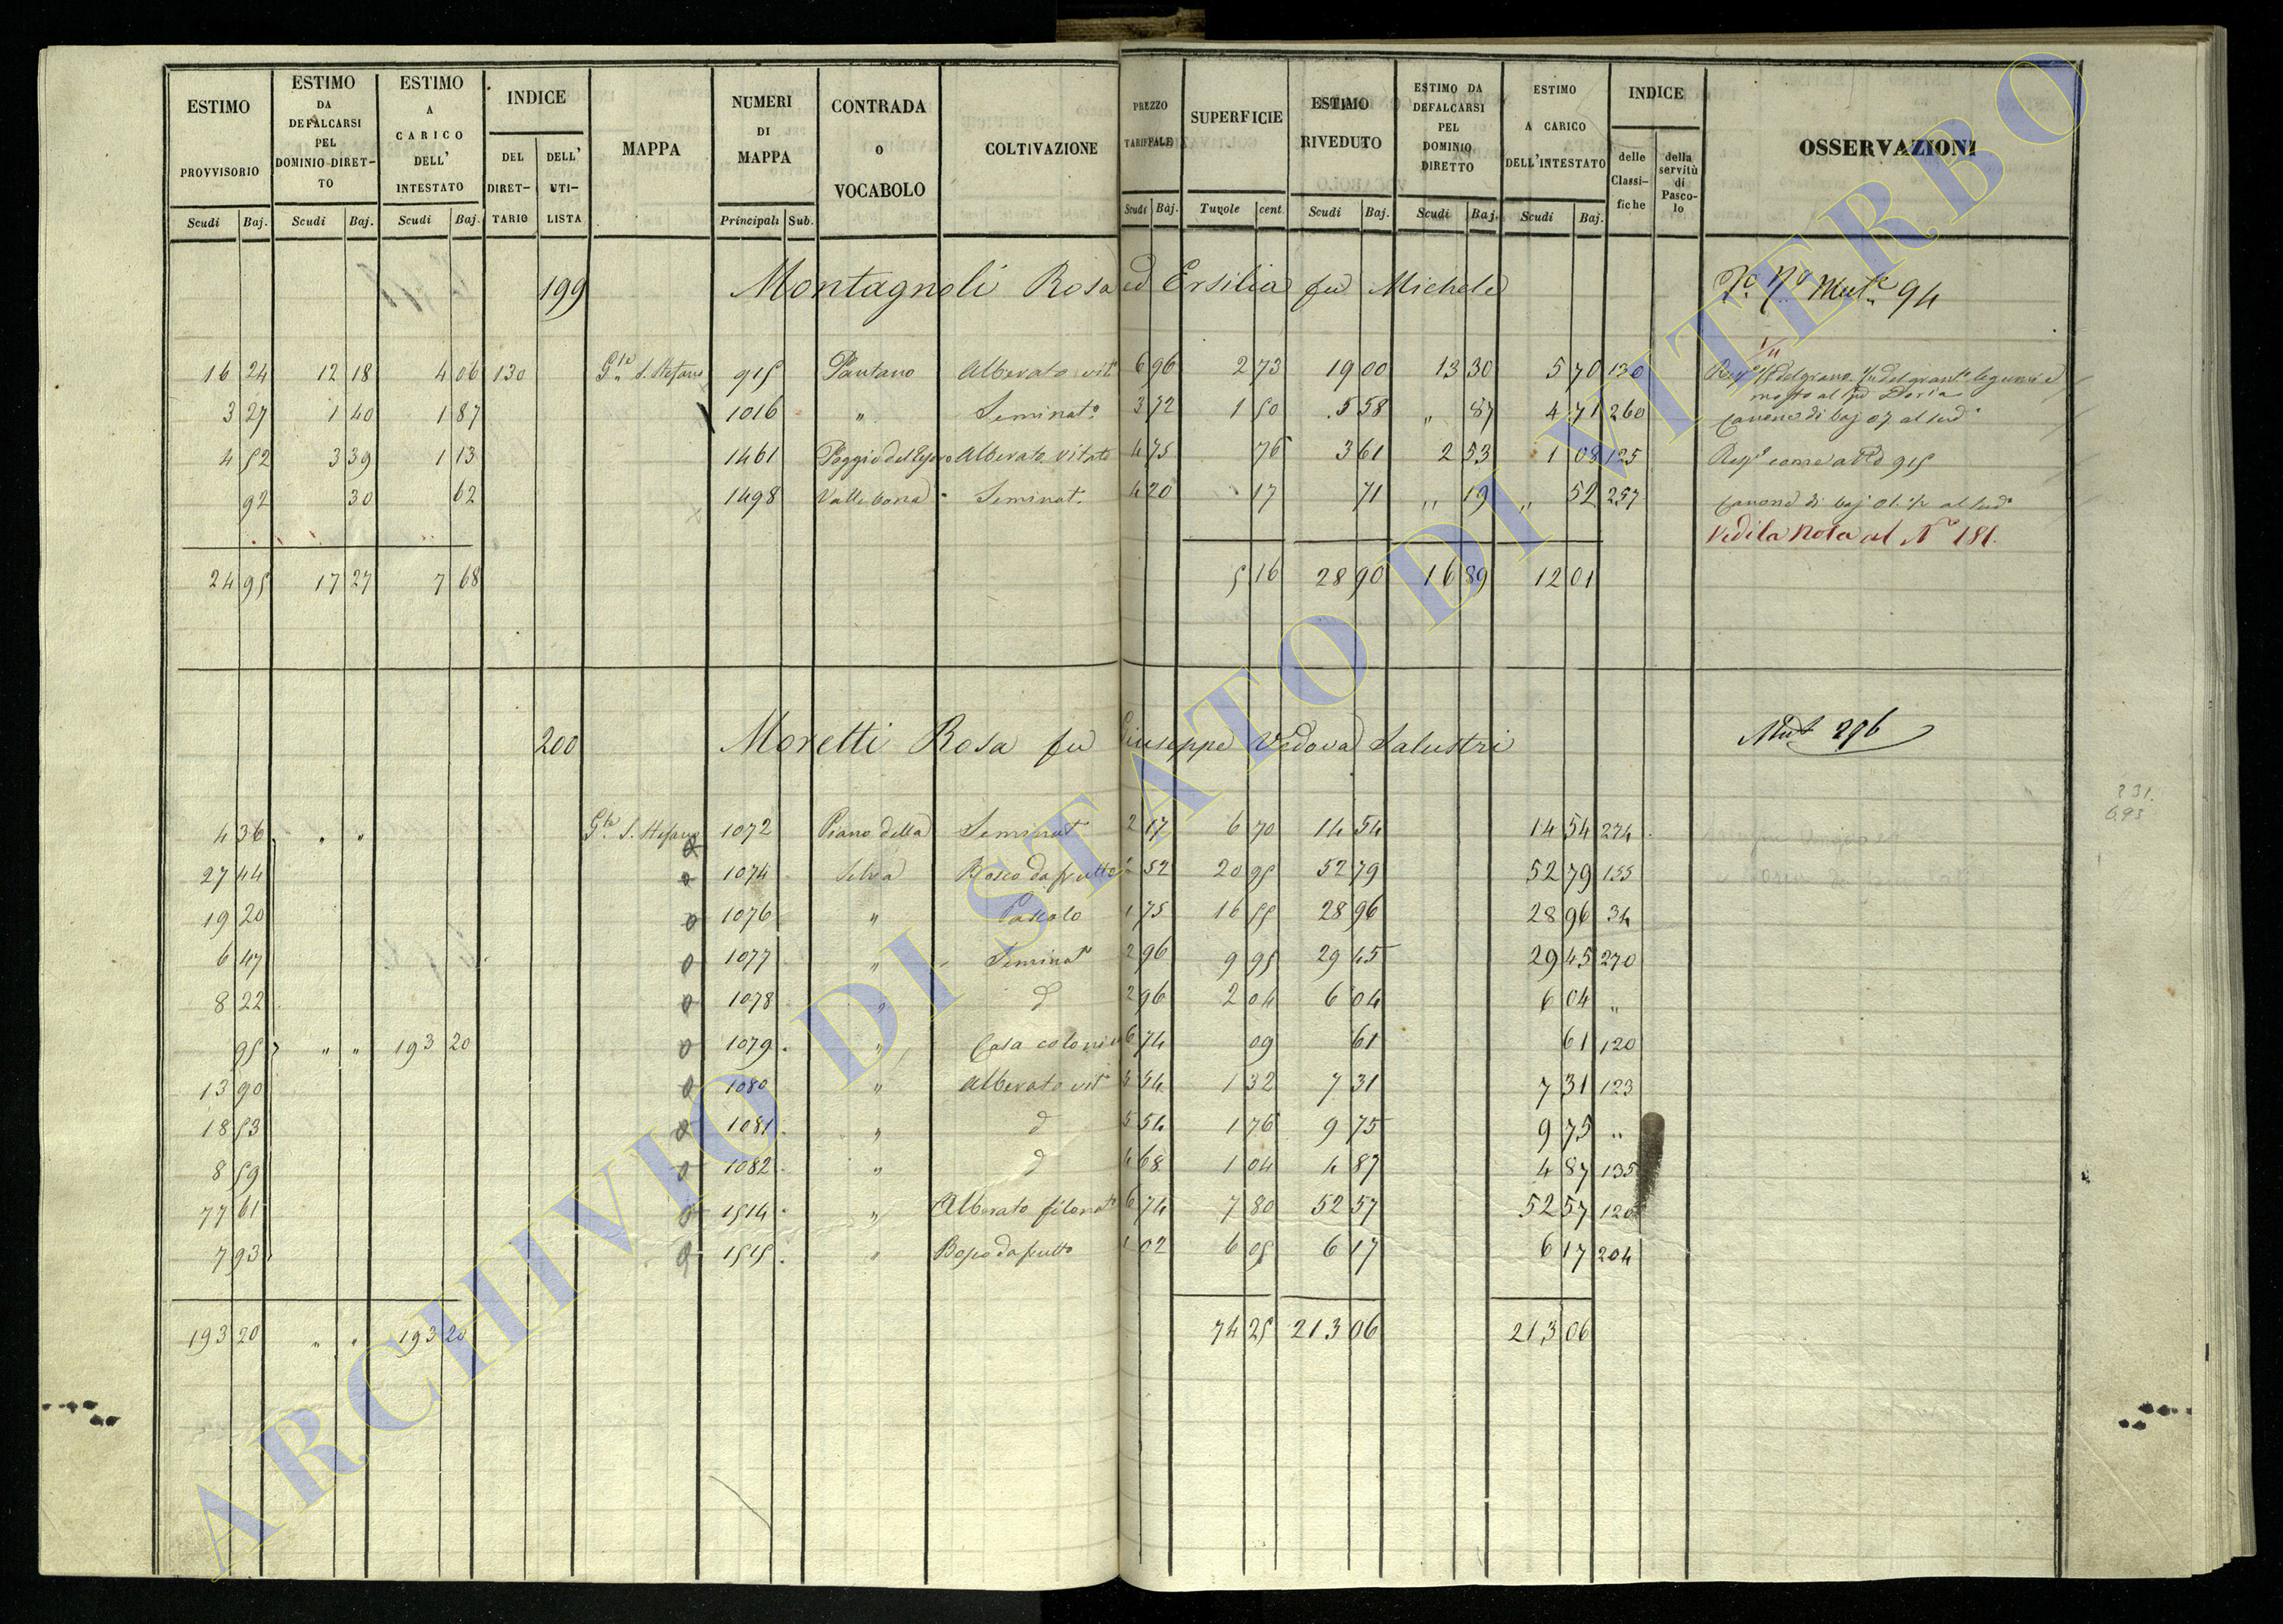 ESTIMO PROVVISORIO Scudi Baj.
ESTIMO DA DEFALCARSI PEL DOMINIO DIRET-TO Scudi Baj.
ESTIMO A CARICO DELL' INTESTATO Scudi Baj.
INDICE DEL DIRET-TARIO DELL' UTI-LISTA
MAPPA
NUMERI DI MAPPA Principali Sub.
CONTRADA O VOCABOLO
COLTIVAZIONE
PREZZO TARIFFALE Scudi Baj.
SUPERFICIE Tuvole cent.
ESTIMO RIVEDUTO Scudi Baj.
ESTIMO DA DEFALCARSI PEL DOMINIO DIRETTO Scudi Baj.
ESTIMO A CARICO DELL'INTESTATO Scudi Baj.
INDICE delle Classi-fiche della servitù di Pasco-lo
OSSERVAZIONI
199 Montagnoli Rosa ed Ersilia fu Michele 94
16 24 12 18 4 06 130 S. Stefano 915 Pantano Alberato vit° 6 96 2 73 19 00 13 30 5 70 130
mosto al Doria
3 27 1 40 1 87 1016 " Seminat° 3 72 1 50 5 58 " 87 4 71 260 Canone di baj 07 al sud°
4 52 3 39 1 13 1461 Alberato vitato 4 75 76 3 61 2 53 1 08 125 come al 915
92 30 62 1498 Valle bona Seminat. 4 20 17 71 " 19 " 52 257 Canone di baj 01 al sud°
Vedi la Nota al N° 181.
24 95 17 27 7 68 5 16 28 90 16 89 12 01
200 Moretti Rosa fu Giuseppe Vedova Salustri Mut 296
231.
693
4 36 " " S. Stefano 1072 Piano della Seminat° 2 17 6 70 14 54 14 54 274
27 44 1074 Selva Bosco da frutto 2 52 20 95 52 79 52 79 155
19 20 1076 " Pascolo 1 75 16 55 28 96 28 96 34
6 47 1077 " Seminat° 2 96 9 95 29 45 29 45 270
8 22 1078 " d 2 96 2 04 6 04 6 04 "
95 " " 193 20 1079 " Casa colonica 6 74 09 61 61 120
13 90 1080 " Alberato vit° 5 54 1 32 7 31 7 31 123
18 53 1081 " d 5 54 1 76 9 75 9 75 "
8 59 1082 " d 4 68 1 04 4 87 4 87 135
77 61 1514 " Alberato filonat° 6 74 7 80 52 57 52 57 120
7 93 1515 " Bosco da frutto 1 02 6 05 6 17 6 17 204
193 20 " " 193 20 74 25 213 06 213 06
ARCHIVIO DI STATO DI VITERBO